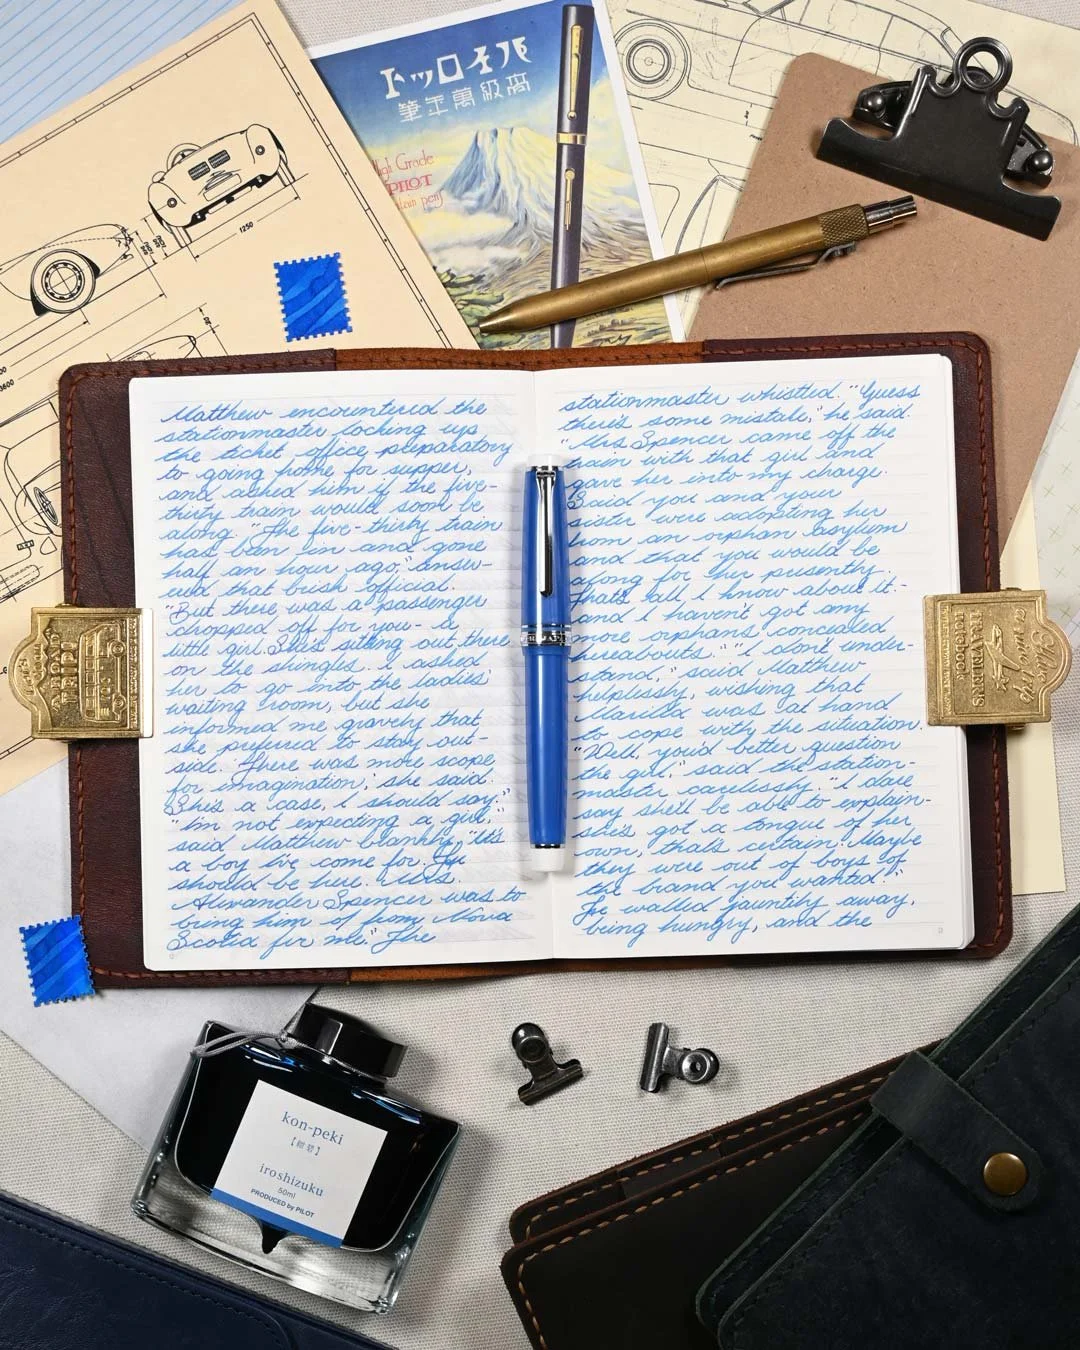 トッロイパ
筆年萬級高
High Grade
PILOT
1250
3600
Matthew encountered the
stationmaster locking up
the ticket office preparatory
to going home for supper,
and asked him if the five-
thirty train would soon be
along. "The five-thirty train
has been in and gone
half an hour ago," answ-
ered that brisk official.
"But there was a passenger
dropped off for you- a
little girl. She's sitting out there
on the shingles. I asked
her to go into the ladies'
waiting room, but she
informed me gravely that
she preferred to stay out-
side. 'There was more scope
for imagination,' she said.
She's a case, I should say."
"I'm not expecting a girl,"
said Matthew blankly. "It's
a boy I've come for. He
should be here. Mrs.
Alexander Spencer was to
bring him of from Nova
Scotia for me." The
stationmaster whistled. "Guess
there's some mistake," he said.
"Mrs. Spencer came off the
train with that girl and
gave her into my charge.
Said you and your
sister were adopting her
from an orphan asylum
and that you would be
along for her presently.
That's all I know about it-
and I haven't got any
more orphans concealed
hereabouts." "I don't under-
stand," said Matthew
helplessly, wishing that
Marilla was at hand
to cope with the situation.
"Well, you'd better question
the girl," said the station-
master carelessly. "I dare
say she'll be able to explain-
she's got a tongue of her
own, that's certain. Maybe
they were out of boys of
the brand you wanted."
He walked jauntily away,
being hungry, and the
kon-peki
【紺碧】
iroshizuku
50ml
PRODUCED by PILOT